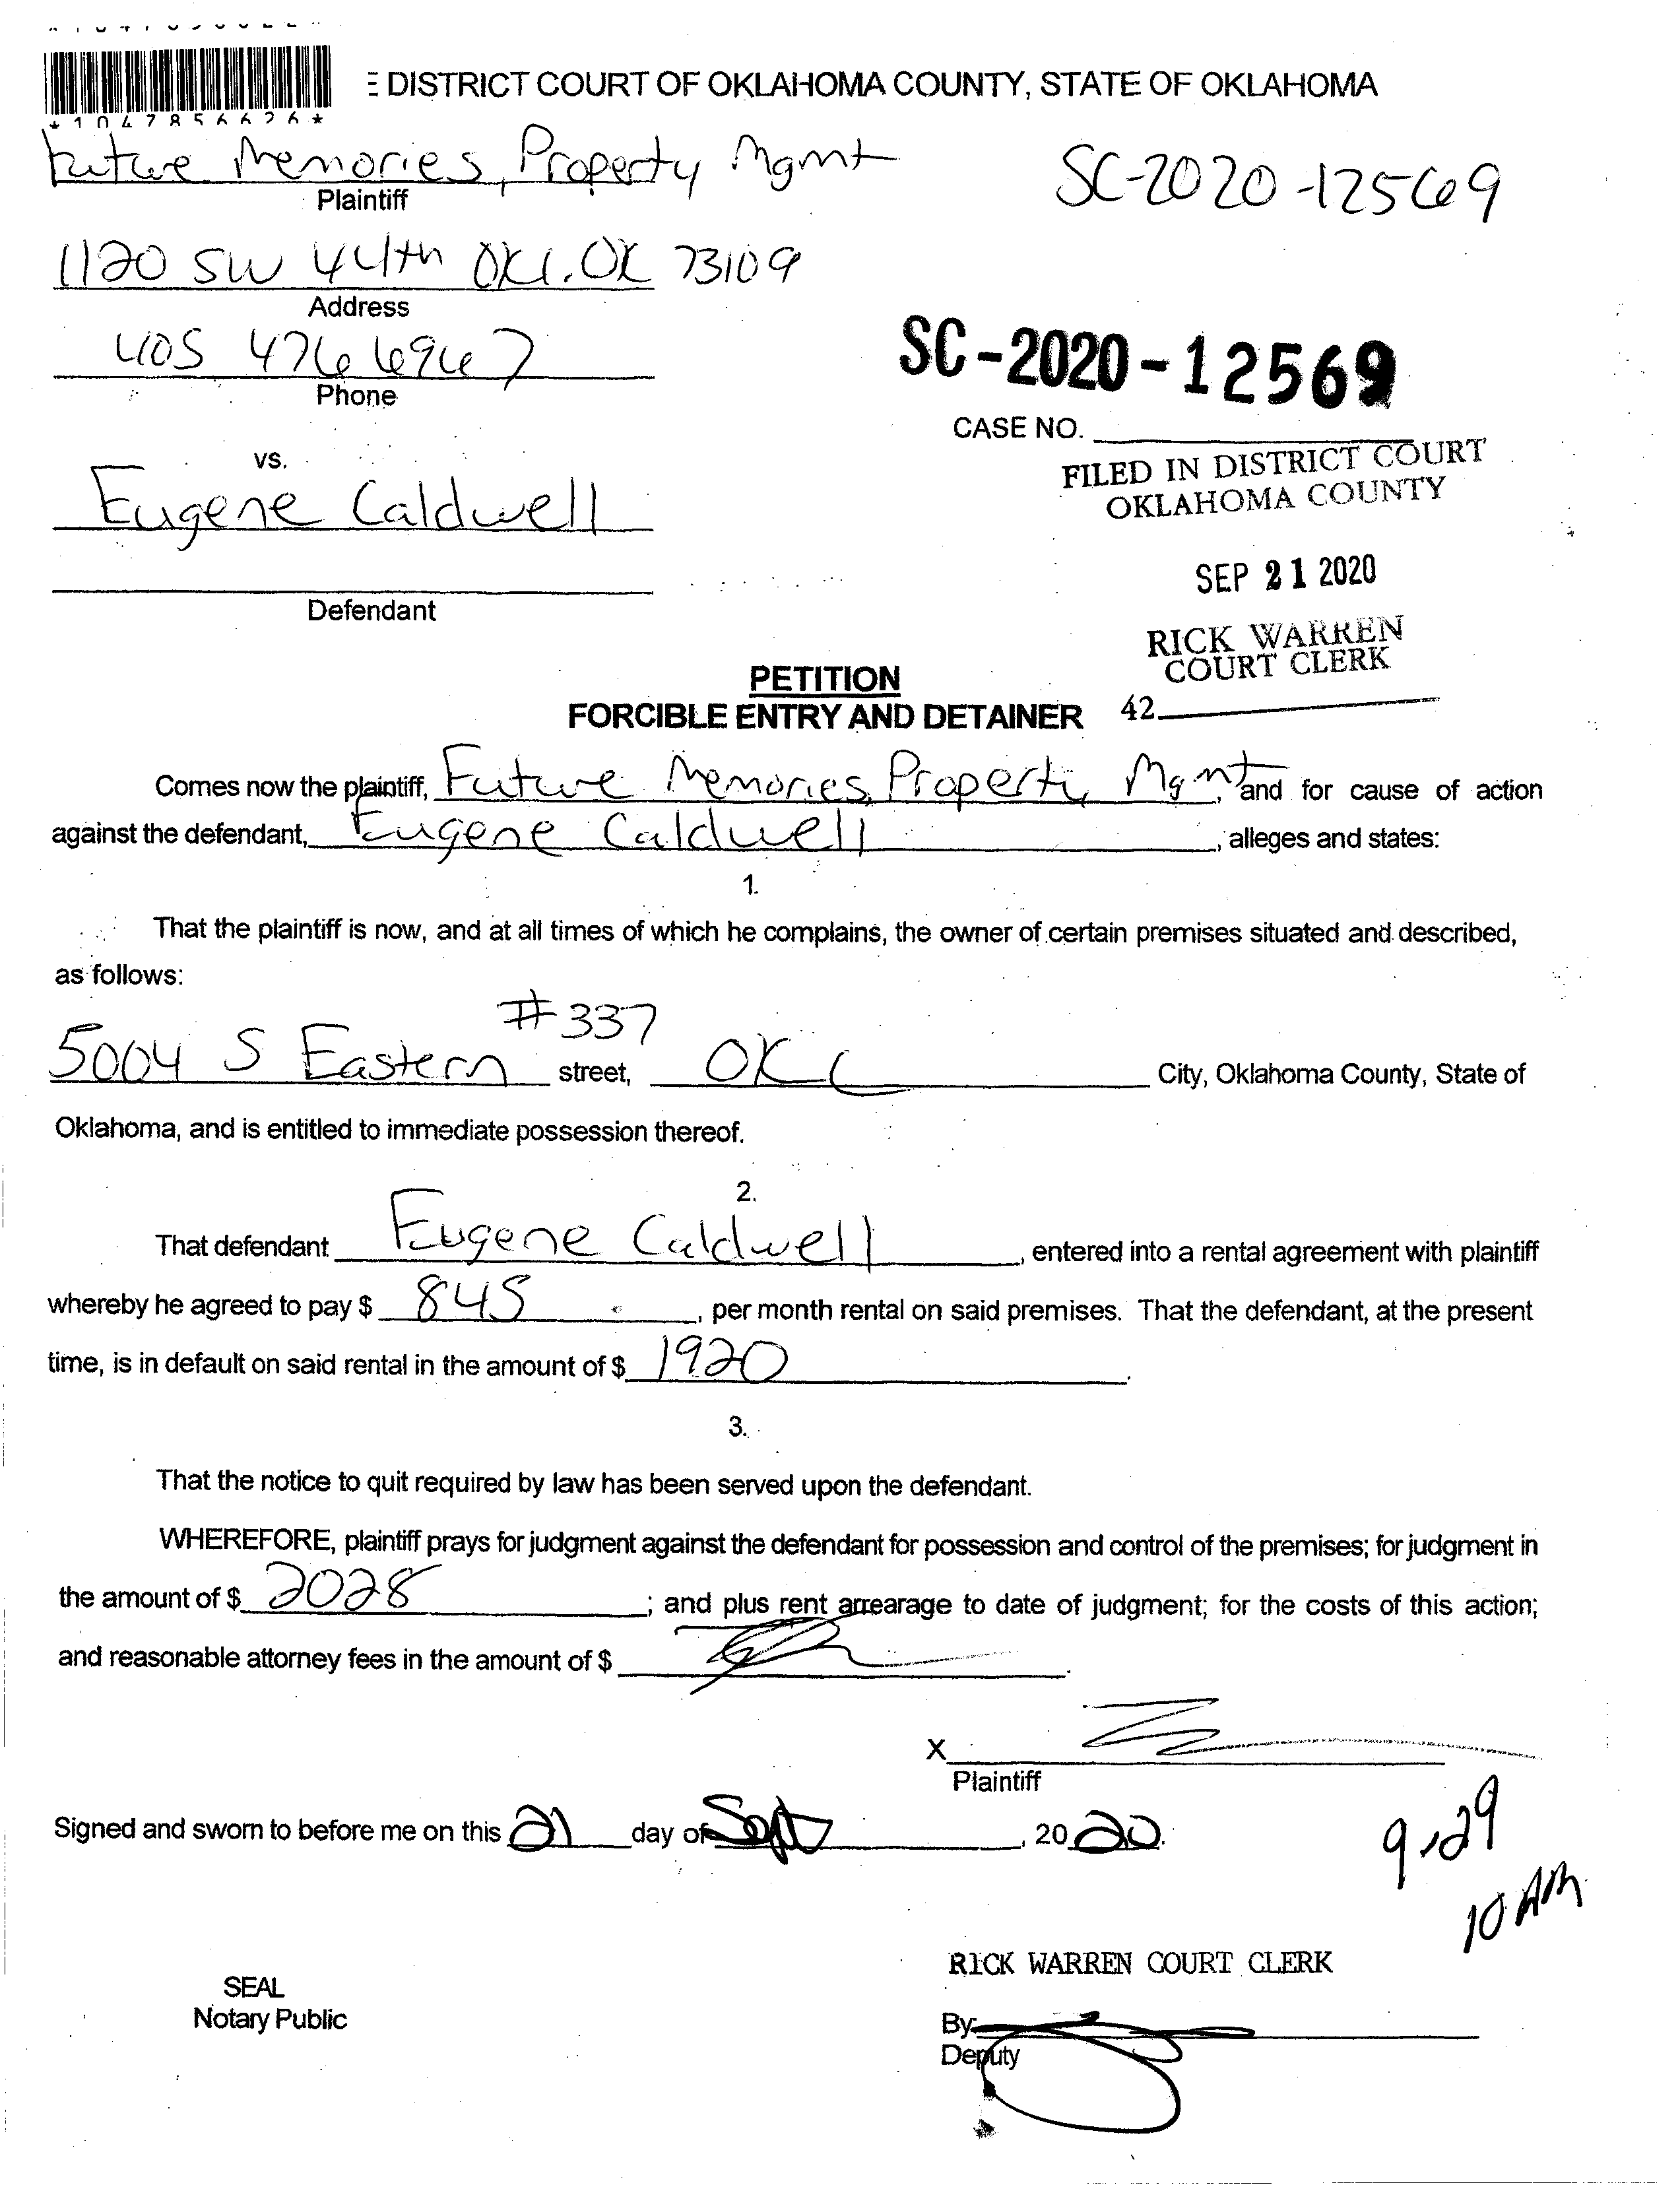 *1047856626*
E DISTRICT COURT OF OKLAHOMA COUNTY, STATE OF OKLAHOMA
Future Memories, Property Mgmt
Plaintiff
SC-2020-12569
1120 SW 44th OKC, OK 73109
Address
405 476 6967
Phone
SC-2020-12569
CASE NO.
vs.
FILED IN DISTRICT COURT
OKLAHOMA COUNTY
Eugene Caldwell
SEP 21 2020
Defendant
RICK WARREN
COURT CLERK
PETITION
42
FORCIBLE ENTRY AND DETAINER
Comes now the plaintiff, Future Memories, Property Mgmt, and for cause of action
against the defendant, Eugene Caldwell, alleges and states:
1.
That the plaintiff is now, and at all times of which he complains, the owner of certain premises situated and described,
as follows:
#337
5004 S Eastern street, OKC City, Oklahoma County, State of
Oklahoma, and is entitled to immediate possession thereof.
2.
That defendant Eugene Caldwell, entered into a rental agreement with plaintiff
whereby he agreed to pay $ 845, per month rental on said premises. That the defendant, at the present
time, is in default on said rental in the amount of $ 1920.
3.
That the notice to quit required by law has been served upon the defendant.
WHEREFORE, plaintiff prays for judgment against the defendant for possession and control of the premises; for judgment in
the amount of $ 2028; and plus rent arrearage to date of judgment; for the costs of this action;
and reasonable attorney fees in the amount of $
X
Plaintiff
Signed and sworn to before me on this 21 day of Sept, 2020.
9-29
10 AM
RICK WARREN COURT CLERK
SEAL
Notary Public
By
Deputy